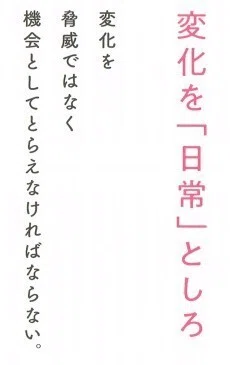 変化を「日常」としろ
変化を
脅威ではなく
機会としてとらえなければならない。